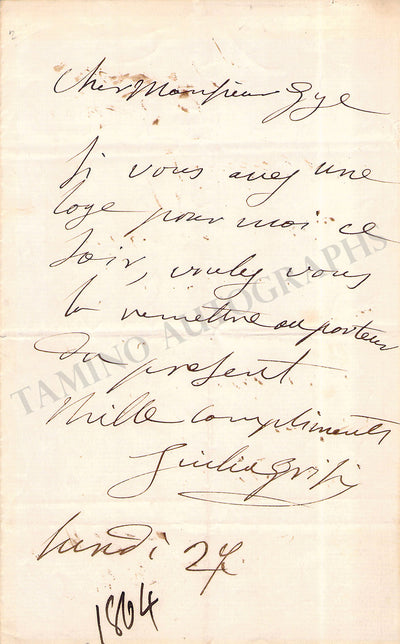 Cher Monsieur Gye
Si vous avez une
loge pour moi ce
Soir, voulez vous
la remettre au porteur
du présent
Mille Compliments
Giulia Grisi
lundi 27
1864
TAMINO AUTOGRAPHS